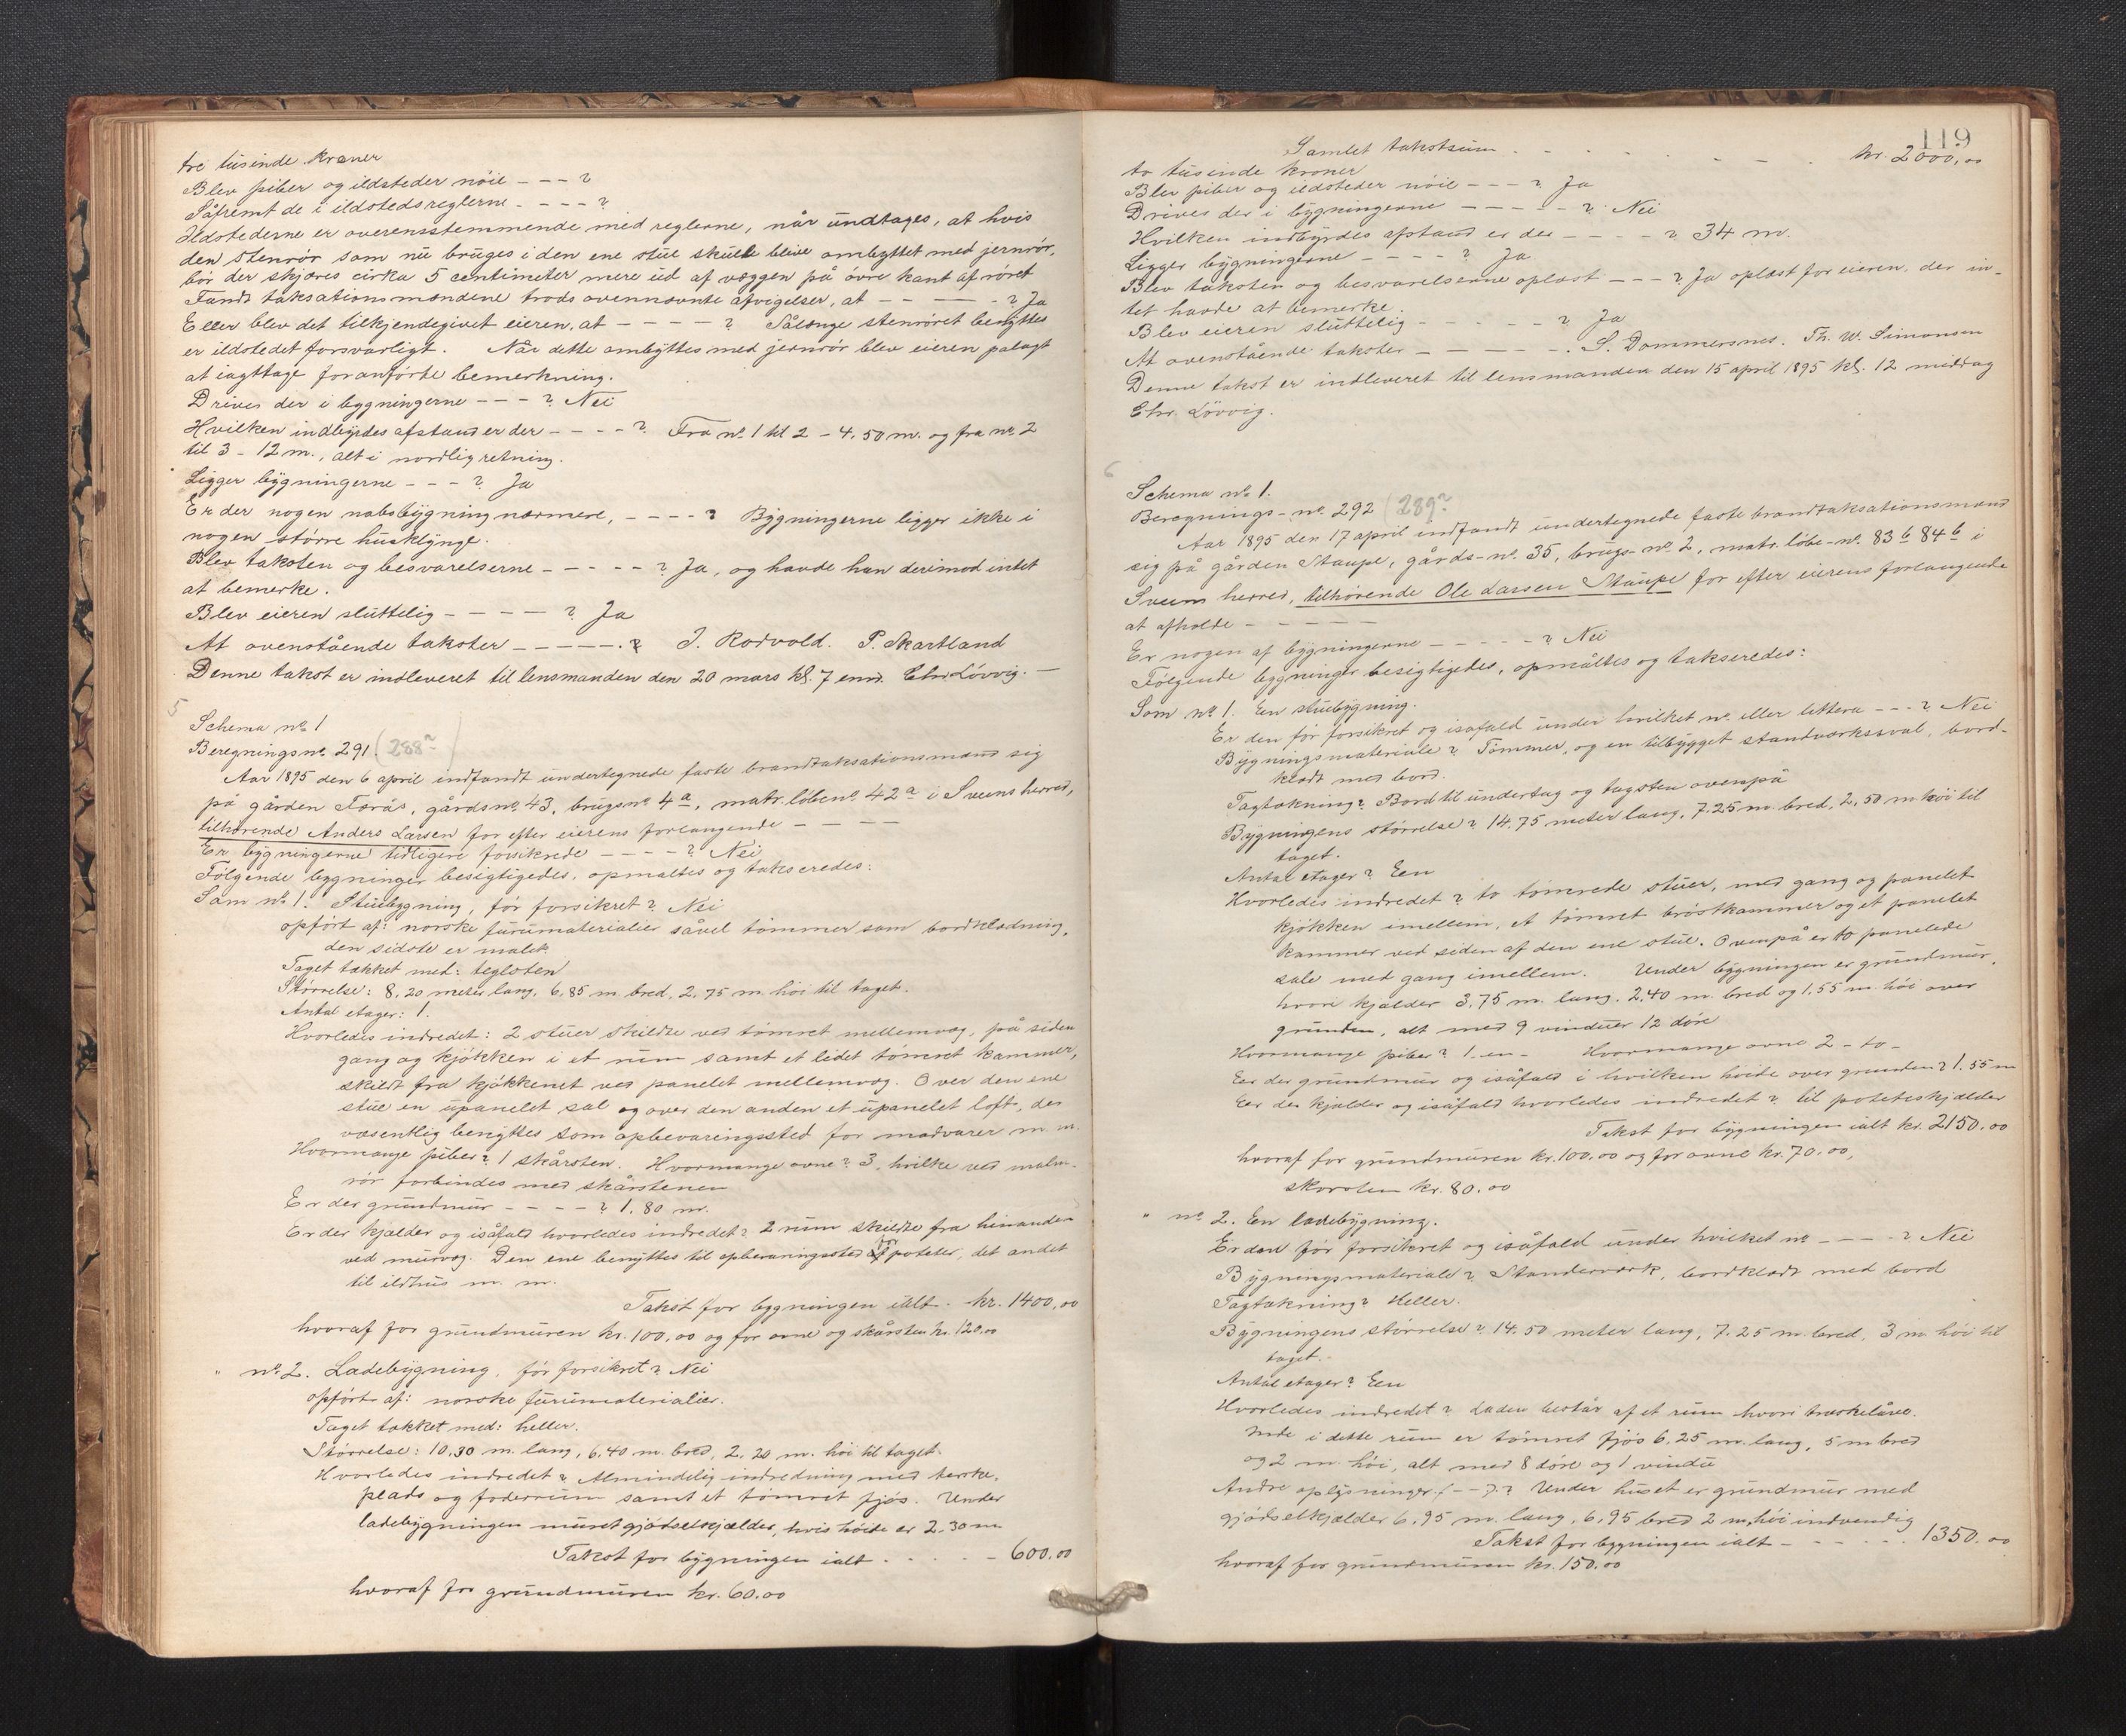 tre tusinde kroner
Blev piber og ildsteder nøie - - - ?
Såfremt de i ildstedsreglerne - - - - ?
Ildstederne er overensstemmende med reglerne, når undtages, at hvis
den stenrör som nu bruges i den ene stue skulle blive ombyttet med jernrör,
bör der skjæres cirka 5 centimeter mere ud af væggen på övre kant af röret
Fandt taksationsmændene trods ovennævnte afvigelser, at - - - - - ? Ja
Eller blev det tilkjendegivet eieren, at - - - - ? Sålænge stenröret benyttes
er ildstedet forsvarligt. Når dette ombyttes med jernrör blev eieren pålagt
at iagttage foranförte bemerkning.
Drives der i bygningerne - - - ? Nei
Hvilken indbyrdes afstand er der - - - - ? Fra no. 1 til 2 - 4.50 m. og fra no. 2
til 3 - 12 m., alt i nordlig retning.
Ligger bygningerne - - - ? Ja
Er der nogen nabobygning nærmere, - - - - ? Bygningerne ligger ikke i
nogen större husklynge.
Blev taksten og besvarelserne - - - - - ? Ja, og havde han derimod intet
at bemerke.
Blev eieren sluttelig - - - - ? Ja
At ovenstående takster - - - - - ? J. Rodvold. P. Skartland
Denne takst er indleveret til lensmanden den 20 mars kl. 7 emd. Chr. Lövvig. -
5
Schema no 1
Beregningsno. 291 (288 a)
Aar 1895 den 6 april indfandt undertegnede faste brandtaksationsmænd sig
på gården Færås, gårdsno. 43, brugsno 4a, matr. löbeno. 42a i Sveens herred,
tilhörende Anders Larsen for efter eierens forlangende - - - -
Er bygningerne tidligere forsikrede - - - - ? Nei
Fölgende bygninger besigtigedes, opmåltes og takseredes:
Som no 1. Stuebygning, för forsikret? Nei
opfört af: norske furumaterialier såvel tömmer som bordklædning,
den sidste er malet.
Taget tækket med: teglsten
Störrelse: 8,20 meter lang, 6,85 m. bred, 2,75 m. höi til taget.
Antal etager: 1.
Hvorledes indredet: 2 stuer skildte ved tömret mellemvæg, på siden
gang og kjökken i et rum samt et lidet tömret kammer,
skildt fra kjökkenet ved panelet mellemvæg. Over den ene
stue en upanelet sal og over den anden et upanelet loft, der
væsentlig benyttes som opbevaringssted for madvarer m. m.
Hvormange piber? 1 skårsten. Hvormange ovne? 3, hvilke ved malm-
rör forbindes med skårstenen
Er der grundmur - - - - ? 1,80 m.
Er der kjelder og isåfald hvorledes indredet? 2 rum skildte fra hinanden
ved murvæg. Den ene benyttes til opbevaringssted for poteter, det andet
til ildhus m. m.
Takst for bygningen ialt. kr. 1400,00
hvoraf for grundmuren kr. 100,00 og for ovne og skårsten kr. 120.00
" no. 2. Ladebygning, för forsikret? Nei
opfört af: norske furumaterialier.
Taget tækket med: heller.
Störrelse: 10,30 m. lang, 6,40 m. bred, 2,20 m. höi til taget.
Hvorledes indredet? Almindelig indredning med terske-
plads og foderrum samt et tömret fjös. Under
ladebygningen muret gjödselkjælder, hvis höide er 2.30 m
Takst for bygningen ialt . . . . - 600.00
hvoraf for grundmuren kr. 60.00
119
Samlet takstsum . - . . . - - . kr. 2000,00
to tusinde kroner
Blev piber og ildsteder nöie - - - ? Ja
Drives der i bygningerne - - - - - ? Nei
Hvilken indbyrdes afstand er der - - - - ? 34 m.
Ligger bygningerne - - - - ? Ja
Blev taksten og besvarelserne oplæst - - - ? Ja oplæst for eieren, der in-
tet havde at bemerke.
Blev eieren sluttelig - - - - - ? Ja
At ovenstående takster - - - - - . S. Dommersnes. Th. W. Simonsen
Denne takst er indleveret til lensmanden den 15 april 1895 kl. 12 middag
Chr. Lövvig.
6
Schema no 1.
Beregnings-no. 292 (289 a
Aar 1895 den 17 april indfandt undertegnede faste brandtaksationsmænd
sig på gården Staupe, gårds-no. 35, brugs-no. 2, matr. löbe-no. 83 b 84 b i
Sveens herred, tilhörende Ole Larsen Staupe for efter eierens forlangende
at afholde - - - - -
Er nogen af bygningerne - - - - ? Nei
Fölgende bygninger besigtigedes, opmåltes og takseredes:
Som no 1. En stuebygning.
Er den för forsikret og isåfald under hvilket no. eller littera - - - ? Nei
Bygningsmateriale? Tömmer, og en tilbygget standværkssval, bord-
klædt med bord.
Tagtækning? Bord til undertag og tagsten ovenpå
Bygningens störrelse? 14.75 meter lang, 7.25 m. bred, 2,50 m. höi til
taget.
Antal etager? Een
Hvorledes indredet? to tömrede stuer, med gang og panelet
kjökken imellem, et tömret bröstkammer og et panelet
kammer ved siden af den ene stue. Ovenpå er to panelede
sale med gang imellem. Under bygningen er grundmur,
hvori kjælder 3,75 m. lang, 2,40 m. bred og 1,55 m. höi over
grunden, alt med 9 vinduer 12 döre
Hvormange piber? 1 - en - Hvormange ovne 2 - to -
Er der grundmur og isåfald i hvilken höide over grunden? 1.55 m
Er der kjælder og isåfald hvorledes indredet? til poteteskjælder
Takst for bygningen ialt kr. 2150.00
hvoraf for grundmuren kr. 100.00 og for ovne kr. 70.00,
skorsten kr. 80.00
" no. 2. En ladebygning.
Er den för forsikret og isåfald under hvilket no - - - - ? Nei
Bygningsmateriale? Standerværk, bordklædt med bord
Tagtækning? Heller.
Bygningens störrelse? 14.50 meter lang, 7.25 m. bred, 3 m. höi til
taget.
Antal etager? Een
Hvorledes indredet? Laden består af et rum hvori træskelåve.
Inde i dette rum er tömret fjös 6,25 m. lang, 5 m bred
og 2 m. höi, alt med 8 döre og 1 vindu
Andre oplysninger (- - )? Under huset er grundmur med
gjödselkjælder 6,95 m. lang, 6,95 bred 2 m. höi indvendig
Takst for bygningen ialt - - - - . . 1350.00
hvoraf for grundmuren kr. 150.00